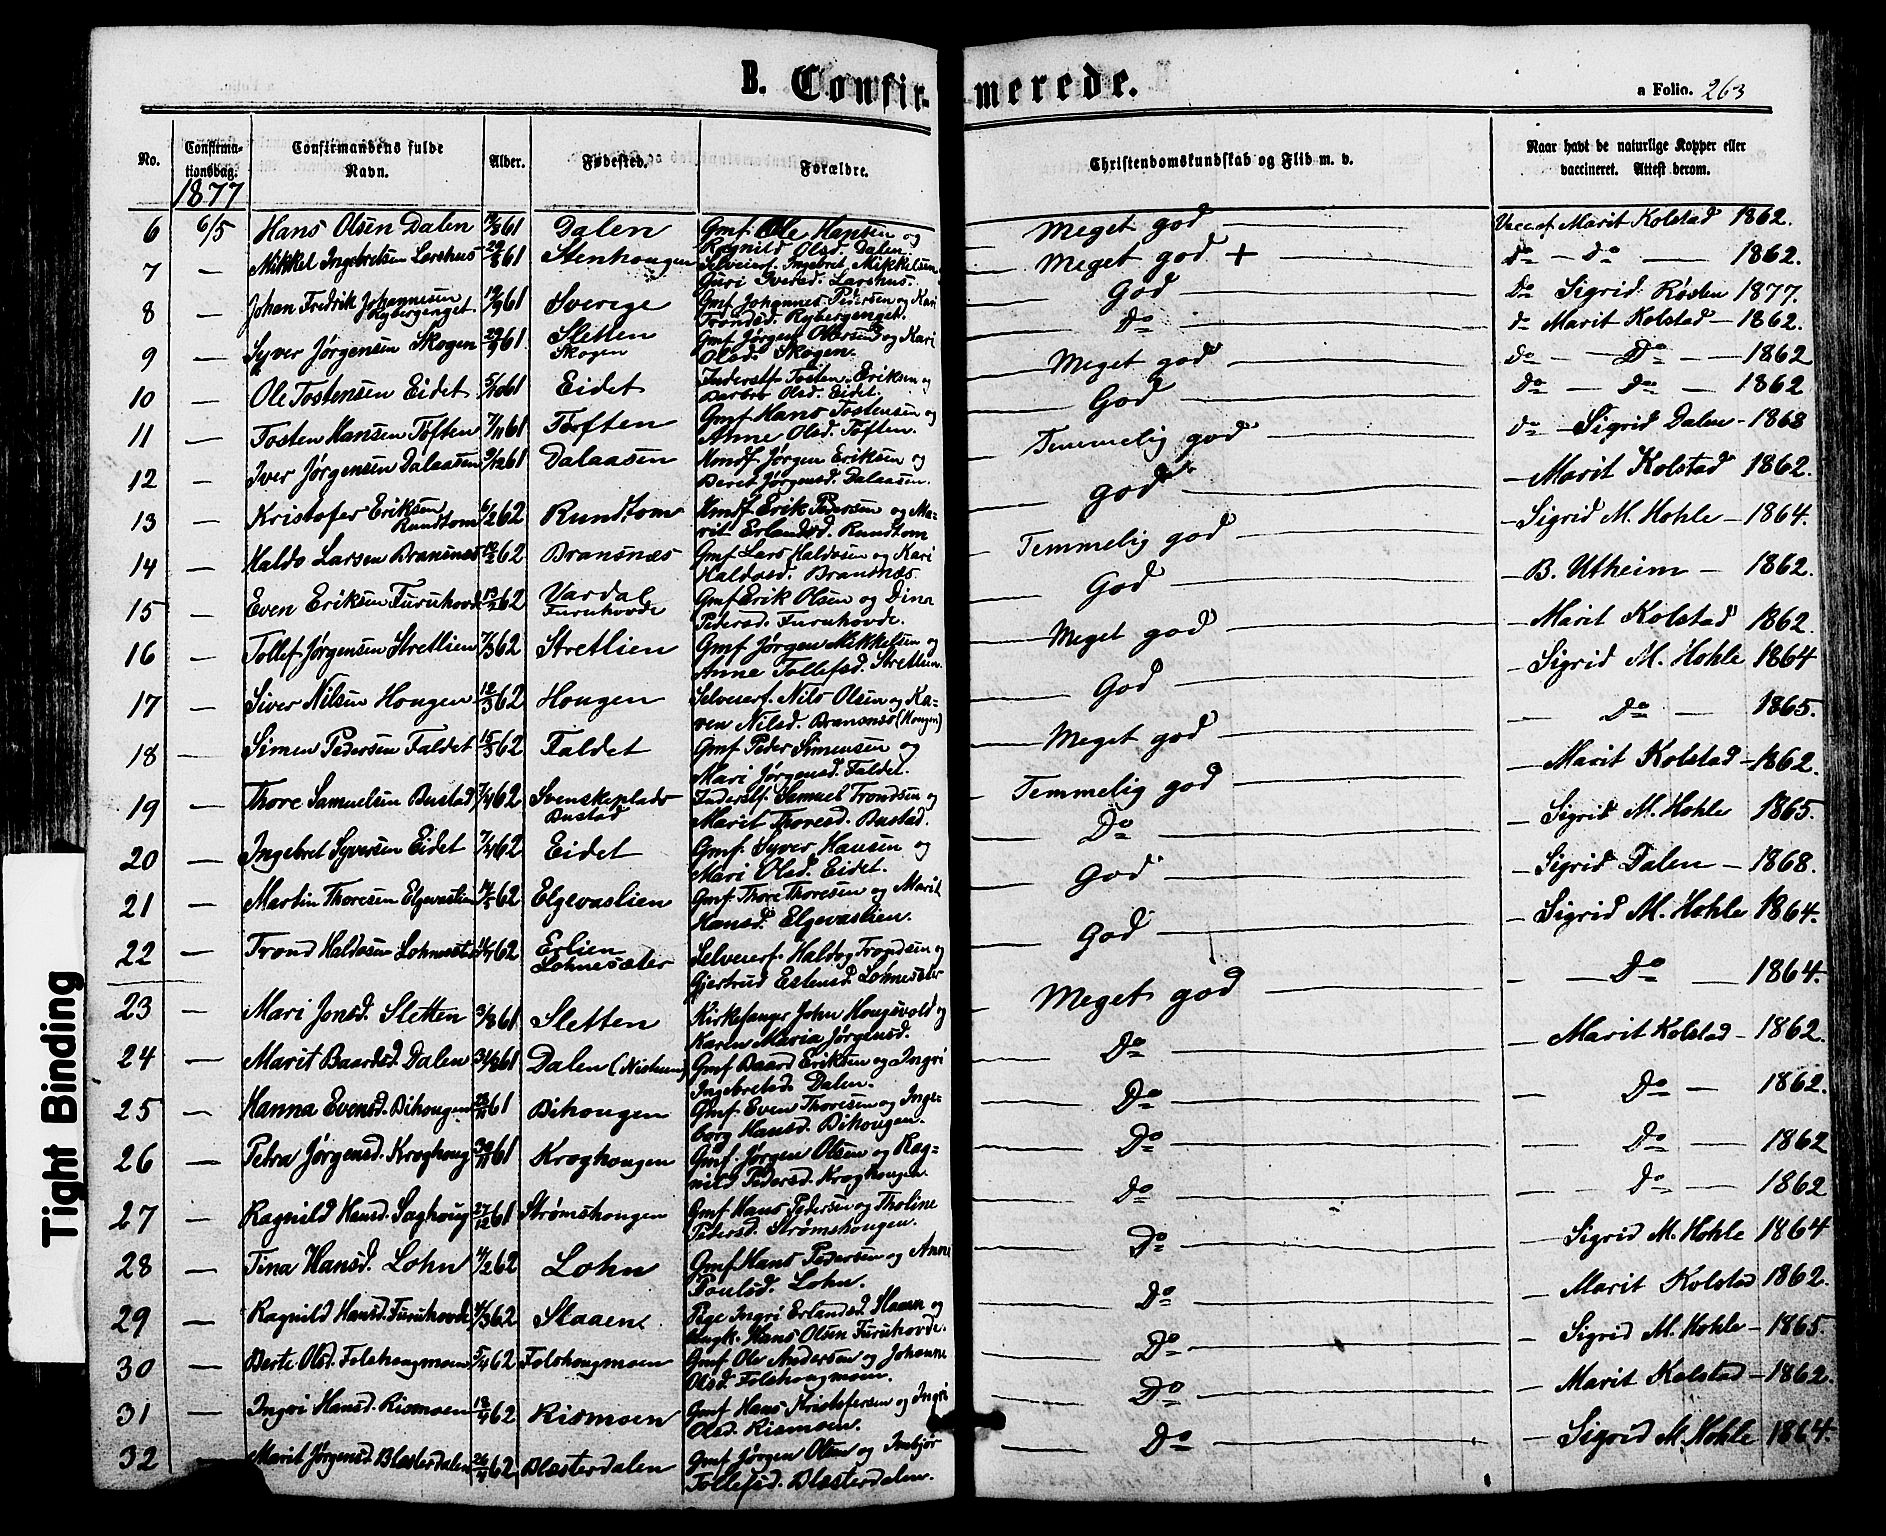 B. Confir-
merede.
a Folio. 263
No.
Confirma-
tionsdag.
Confirmandens fulde
Navn.
Alder.
Fødested.
Forældre.
Christendomskundskab og Flid m. v.
Naar havt de naturlige Kopper eller
vaccineret. Attest derom.
1877
6 6/5 Hans Olsen Dalen 61 Dalen Gmf. Ole Hansen og
Ragnild Olsd. Dalen Meget god Vacc af Marit Kolstad 1862.
7 — Mikkel Ingebretsen Larshus 61 Stenhougen Selveierf. Ingebrit Mikkelsen
Guri Iversd. Larshus. Meget god + do — do — 1862.
8 — Johan Fredrik Johannesen
Rybergenget. 61 Sverige Gmf Johannes Pedersen og Kari
Trondsd. Rybergenget. God Do Sigrid Røsten 1877.
9 — Syver Jørgensen Skogen 29/9 61 Sletten
Skogen Gmf Jørgen og Kari
Olsd. Skogen. Do do Marit Kolstad — 1862.
10 — Ole Tostensen Eidet 5/10 61 Eidet Inderstf. Tosten Eriksen og
Barbro Olsd. Eidet. Meget god do — Do — 1862
11 — Tosten Hansen Toften 7/11 61 Toften Gmf Hans Tostensen og
Anne Olsd. Toften. God do — do — 1862
12 — Iver Jørgensen Dalaasen 9/12 61 Dalaasen Hmdf Jørgen Eriksen og
Beret Jørgensd. Dalaasen. Temmelig god do — Sigrid Dalen — 1868
13 — Kristofer Eriksen
Rundtom 6/2 62 Rundtom Hmdf Erik Pedersen og Ma-
rit Erlandsd. Rundtom god — Marit Kolstad 1862.
14 — Haldo Larsen Bransnes 62 Bransnæs Gmf Lars Haldosen og Kari
Haldosd. Bransnæs. Temmelig god — Sigrid M. Hohle — 1864.
15 — Even Eriksen Furuhovde 62 Vardal
Furuhovde Gmf Erik Olsen og Dina
Pedersd. Furuhovde. God — B. Utheim — 1862.
16 — Tollef Jørgensen Stretlien 7/3 62 Stretlien Gmf Jørgen Mikkelsen og
Anne Tollefsd. Stretlien. Meget god — Marit Kolstad 1862.
17 — Siver Nilsen Hougen 12/3 62 Hougen Selveierf. Nils Olsen og Ka-
ren Nilsd. Bransnæs (Hougen) God — Sigrid M. Hohle 1864
18 — Simen Pedersen Faldet 15/3 62 Faldet Gmf Peder Simensen og
Mari Jørgensd. Faldet. Meget god — Do — 1865.
19 — Thore Samuelsen Bustad 7/4 62 Svenskeplads
Bustad Inderstf. Samuel Trondsen og
Marit Thoresd. Bustad. Temmelig god — Marit Kolstad — 1862.
20 — Ingebret Syversen Eidet 7/4 62 Eidet Gmf. Syver Hansen og
Mari Olsd. Eidet. Do — Sigrid M. Hohle 1865.
21 — Martin Thoresen Elgevaslien 62 Elgevaslien Gmf Thore Thoresen og Marit
Hansd. Elgevaslien. God — Sigrid Dalen — 1868.
22 — Trond Haldosen Lohnesæter 62 Erlien
Lohnesæter Selveierf. Haldo Trondsen og
Gjertrud Estensd. Lohnesæter God — Sigrid M. Hohle 1864.
23 — Mari Jonsd. Sletten 3/8 61 Sletten Kirkesanger John Hougsvold og
Karen Maria Jørgensd. Meget god — Do — 1864.
24 — Marit Baardsd. Dalen 61 Dalen (Nistuen) Gmf Baard Eriksen og Ingri
Ingebretsd. Dalen. Do — Marit Kolstad — 1862.
25 — Hanna Evensd. Bihougen 61 Bihougen Gmf Even Thoresen og Inge-
borg Hansd. Bihougen. Do — Do — 1862.
26 — Petra Jørgensd. Kroghoug 61 Kroghougen Gmf. Jørgen Olsen og Rag-
nild Pedersd. Kroghougen. Do — Do — 1862
27 — Ragnild Hansd. Saghoug 27/12 61 Strømshougen Gmf Hans Pedersen og Tholine
Pedersd. Strømshougen. Do — Do — 1862
28 — Tina Hansd. Lohn 4/2 62 Lohn Gmf. Hans Pedersen og Anne
Poulsd. Lohn. Do — Sigrid M. Hohle 1864
29 — Ragnild Hansd. Furuhovde 4/3 62 Slaaen Pige Ingri Erlandsd. Slaaen og
Ungk. Hans Olsen Furuhovde. Do — Marit Kolstad 1862.
30 — Berte Olsd. Folshougmoen 5/4 62 Folshougmoen Gmf Ole Andersen og Johanne
Olsd. Folshougmoen. Do — Sigrid M. Hohle — 1865.
31 — Ingri Hansd. Rismoen 18/4 62 Rismoen Gmf Hans Kristofersen og Ingri
Olsd. Rismoen. Do — Marit Kolstad — 1862.
32 Marit Jørgensd Blæsterdalen 62 Blæsterdalen Gmf Jørgen Olsen og Imbjør
Tollefsd. Blæsterdalen. Do — Sigrid M. Hohle 1864.
Tight Binding